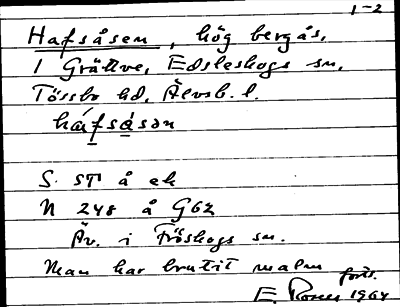 1-2
Hafsåsen, hög bergås,
I Grättve, Edsleskogs sn,
Tössbo hd, Älvsb. l.
háfsåsən
S. STI å ek
N 248 å G62
Äv. i Fröskogs sn.
Man har brutit malm
forts.
E. Rosen 1964